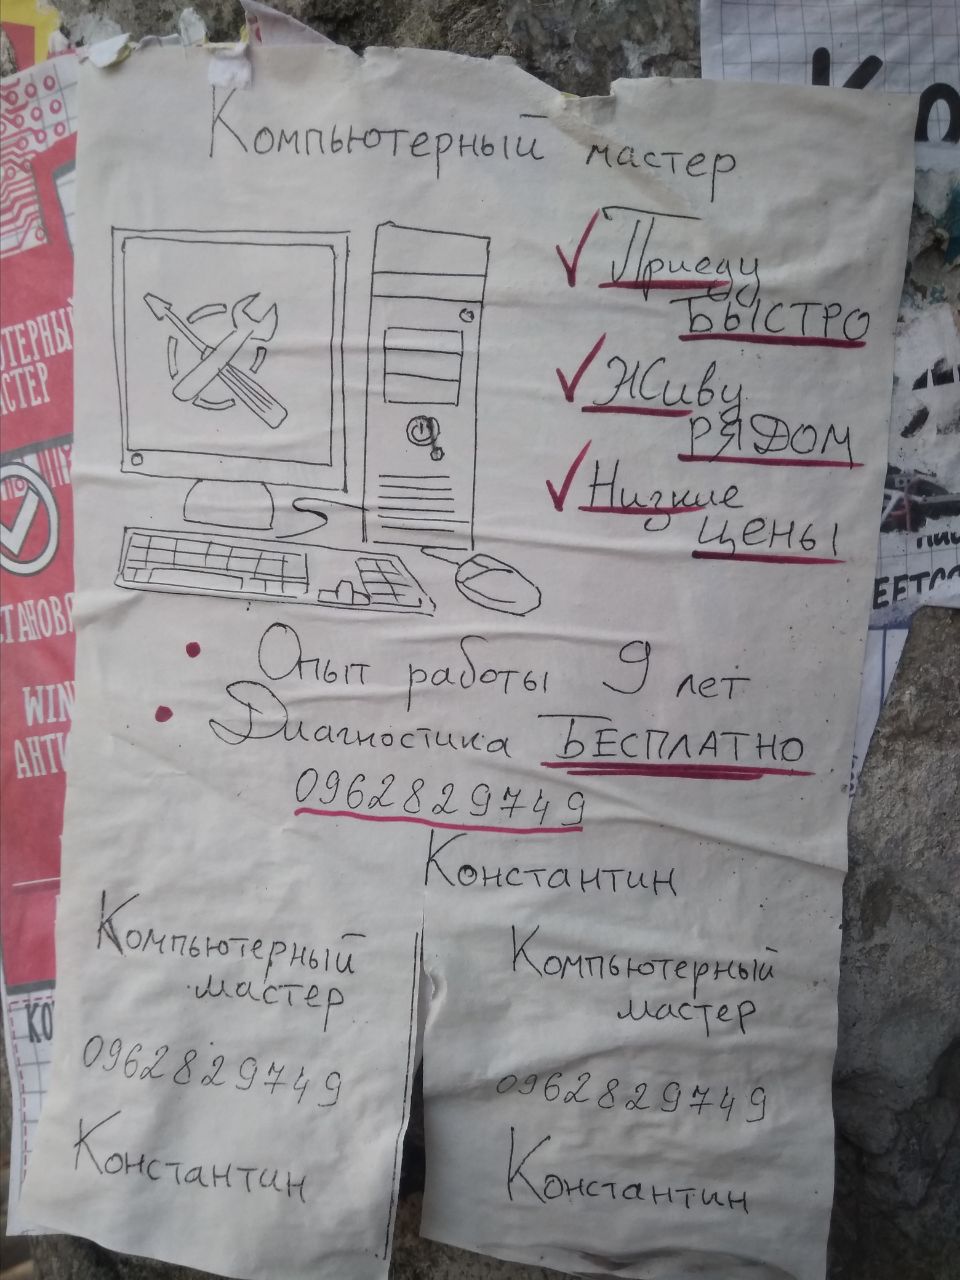 Компьютерный мастер
Приеду
БЫСТРО
Живу
РЯДОМ
Низкие
ЦЕНЫ
Опыт работы 9 лет
Диагностика БЕСПЛАТНО
0962829749
Константин
Компьютерный
мастер
0962829749
Константин
Компьютерный
мастер
0962829749
Константин
ТЕРНЫЙ
АСТЕР
СТАНОВК
WIN
АНТИ
КО